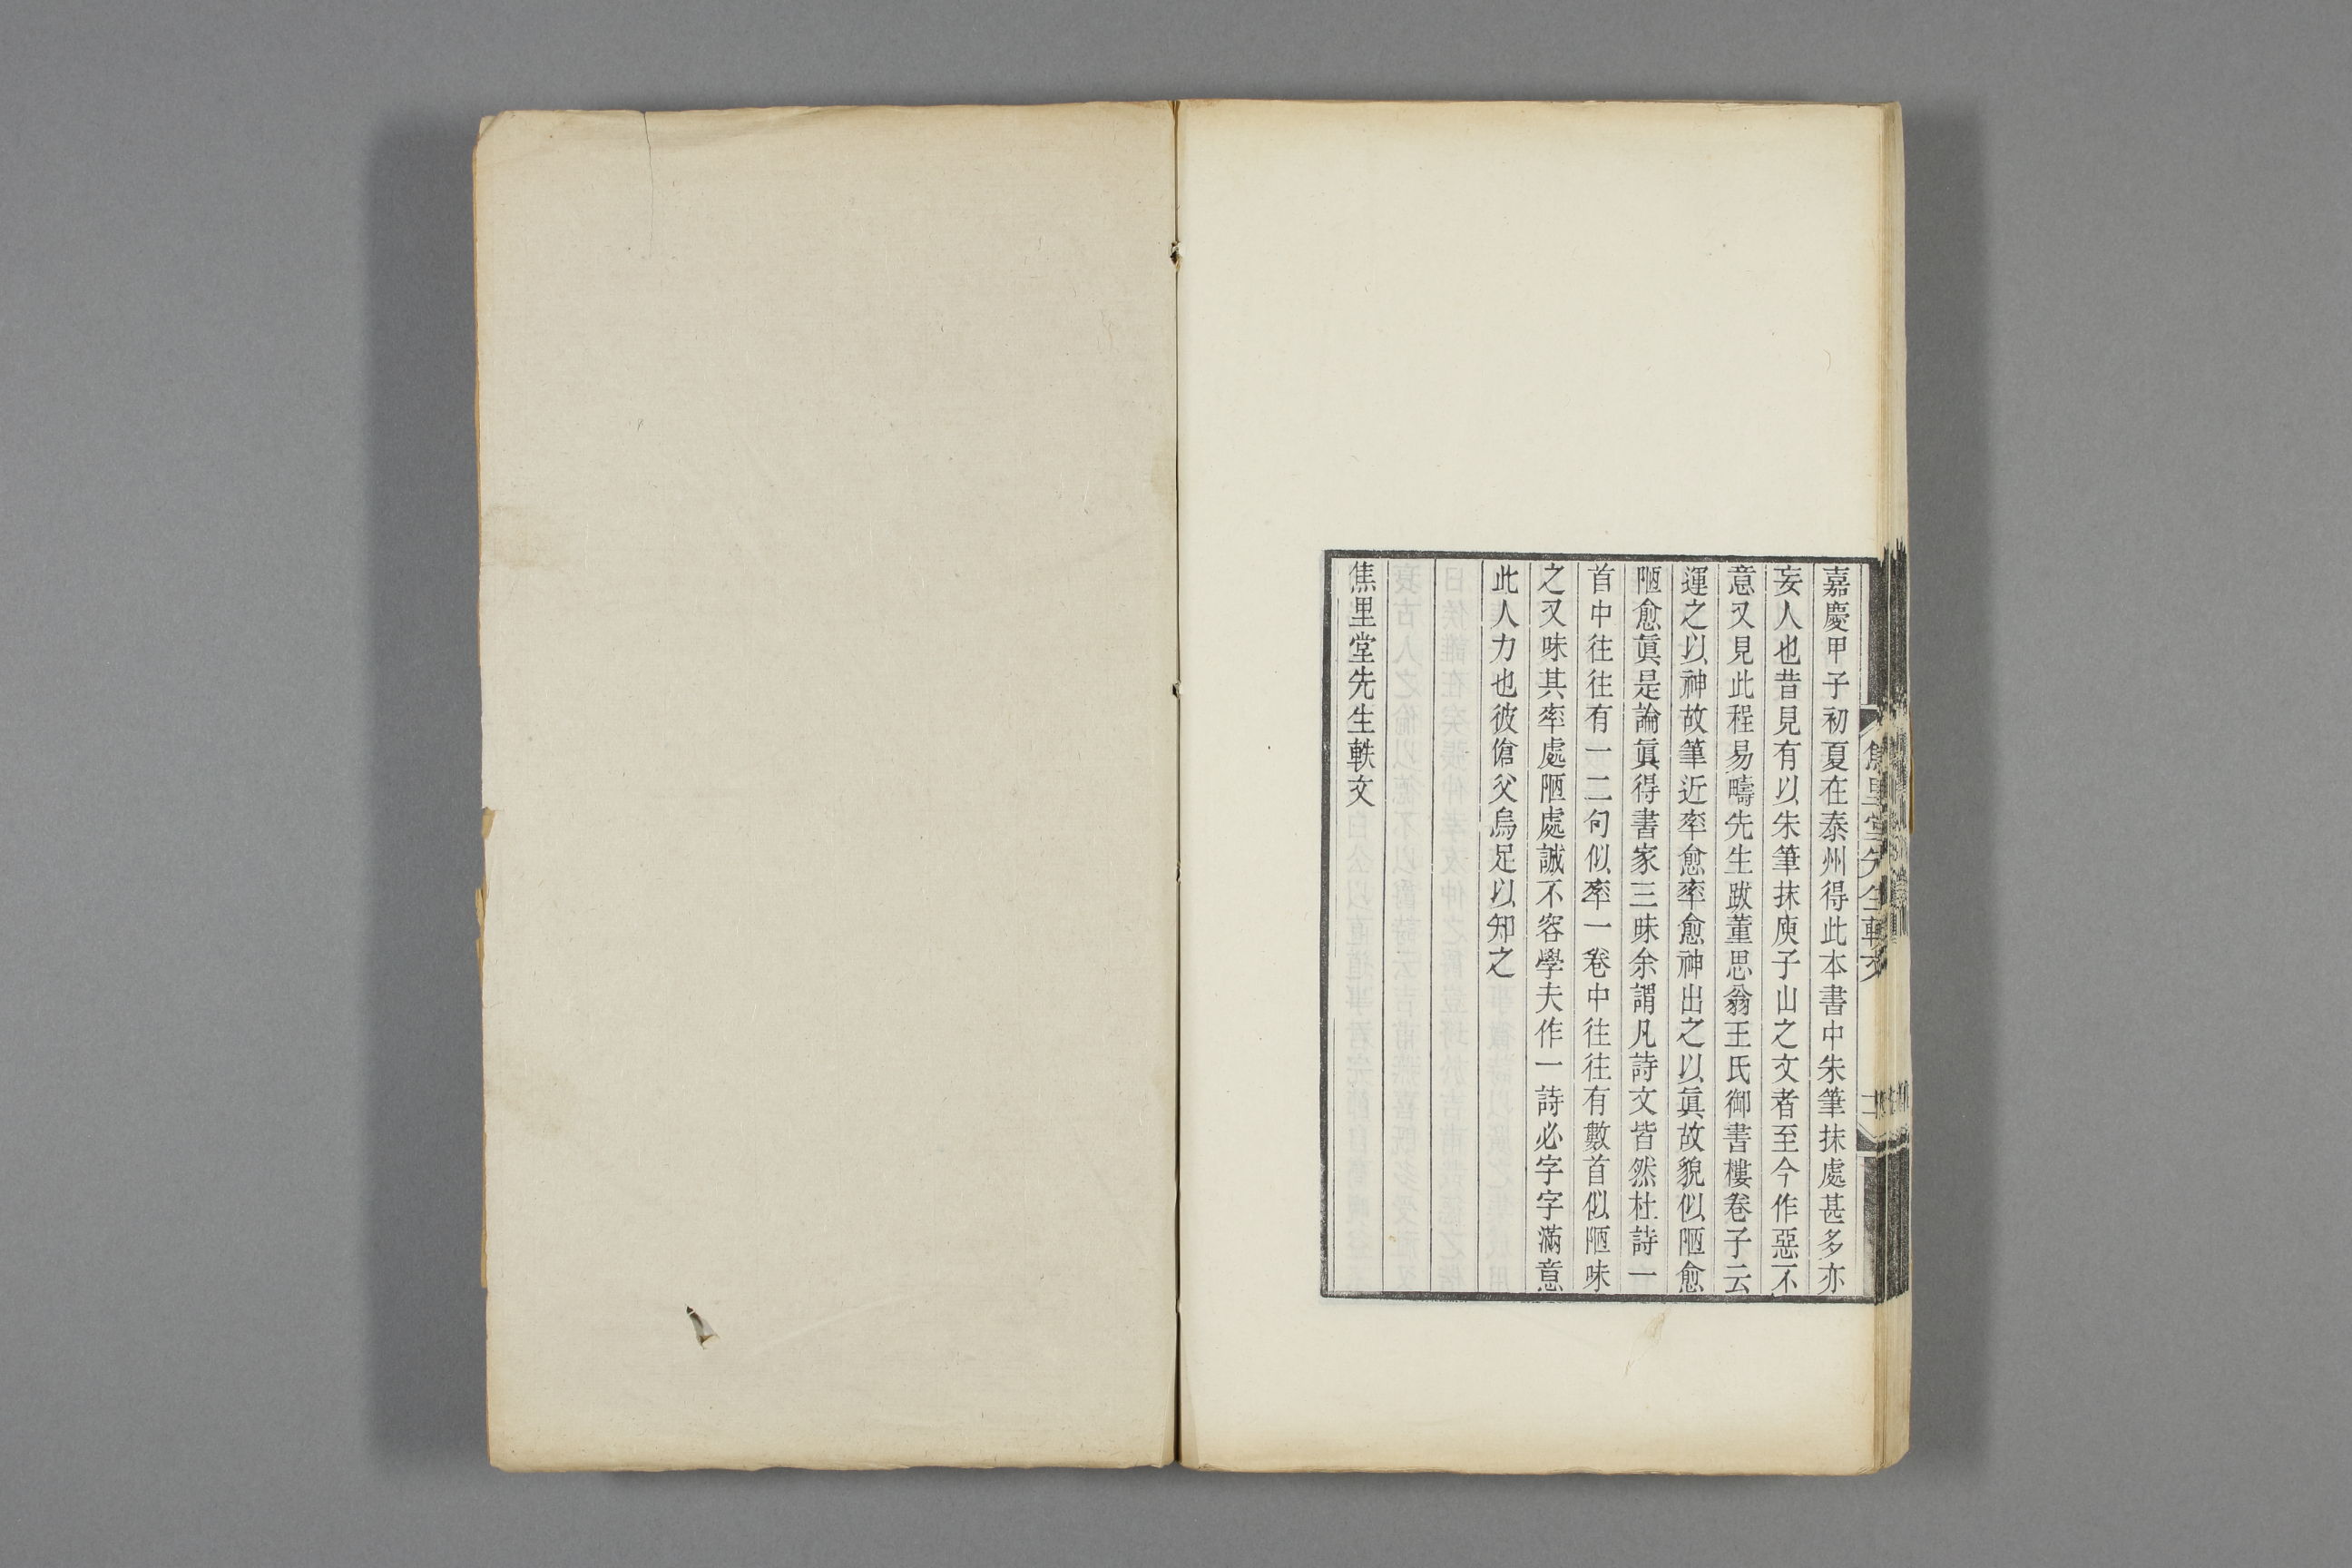 嘉慶甲子初夏在泰州得此本書中朱筆抹處甚多亦
妄人也昔見有以朱筆抹庾子山之文者至今作惡不
意又見此程易疇先生跋董思翁王氏御書樓卷子云
運之以神故筆近率愈率愈神出之以眞故貌似陋愈
陋愈眞是論眞得書家三昧余謂凡詩文皆然杜詩一
首中往往有一二句似率一卷中往往有數首似陋味
之又味其率處陋處誠不容學夫作一詩必字字滿意
此人力也彼傖父烏足以知之
焦里堂先生軼文
焦里堂先生軼文